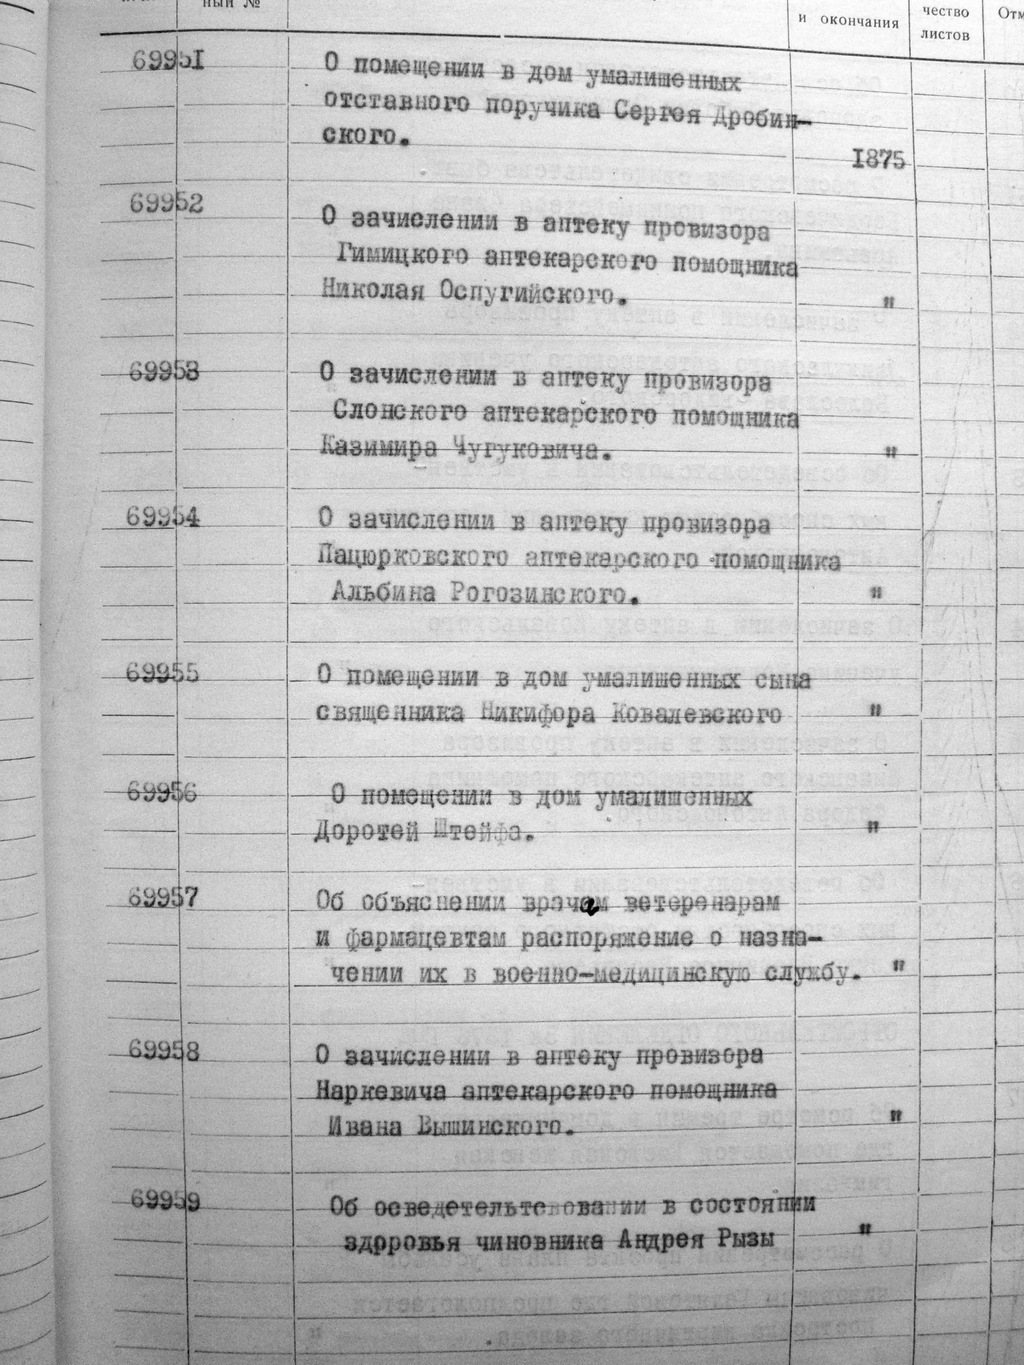 ный №
и окончания
чество
листов
69951
О помещении в дом умалишенных
отставного поручика Сергея Дробин-
ского.
1875
69952
О зачислении в аптеку провизора
Гимицкого аптекарского помощника
Николая Оспугийского.
"
69953
О зачислении в аптеку провизора
Слонского аптекарского помощника
Казимира Чугуковича.
"
69954
О зачислении в аптеку провизора
Пацюрковского аптекарского помощника
Альбина Рогозинского.
"
69955
О помещении в дом умалишенных сына
священника Никифора Ковалевского
"
69956
О помещении в дом умалишенных
Доротей Штейфа.
"
69957
Об объяснении врачам ветеренарам
и фармацевтам распоряжение о назна-
чении их в военно-медицинскую службу.
"
69958
О зачислении в аптеку провизора
Наркевича аптекарского помощника
Ивана Вышинского.
"
69959
Об осведетельтвовании в состоянии
здоровья чиновника Андрея Рызы
"